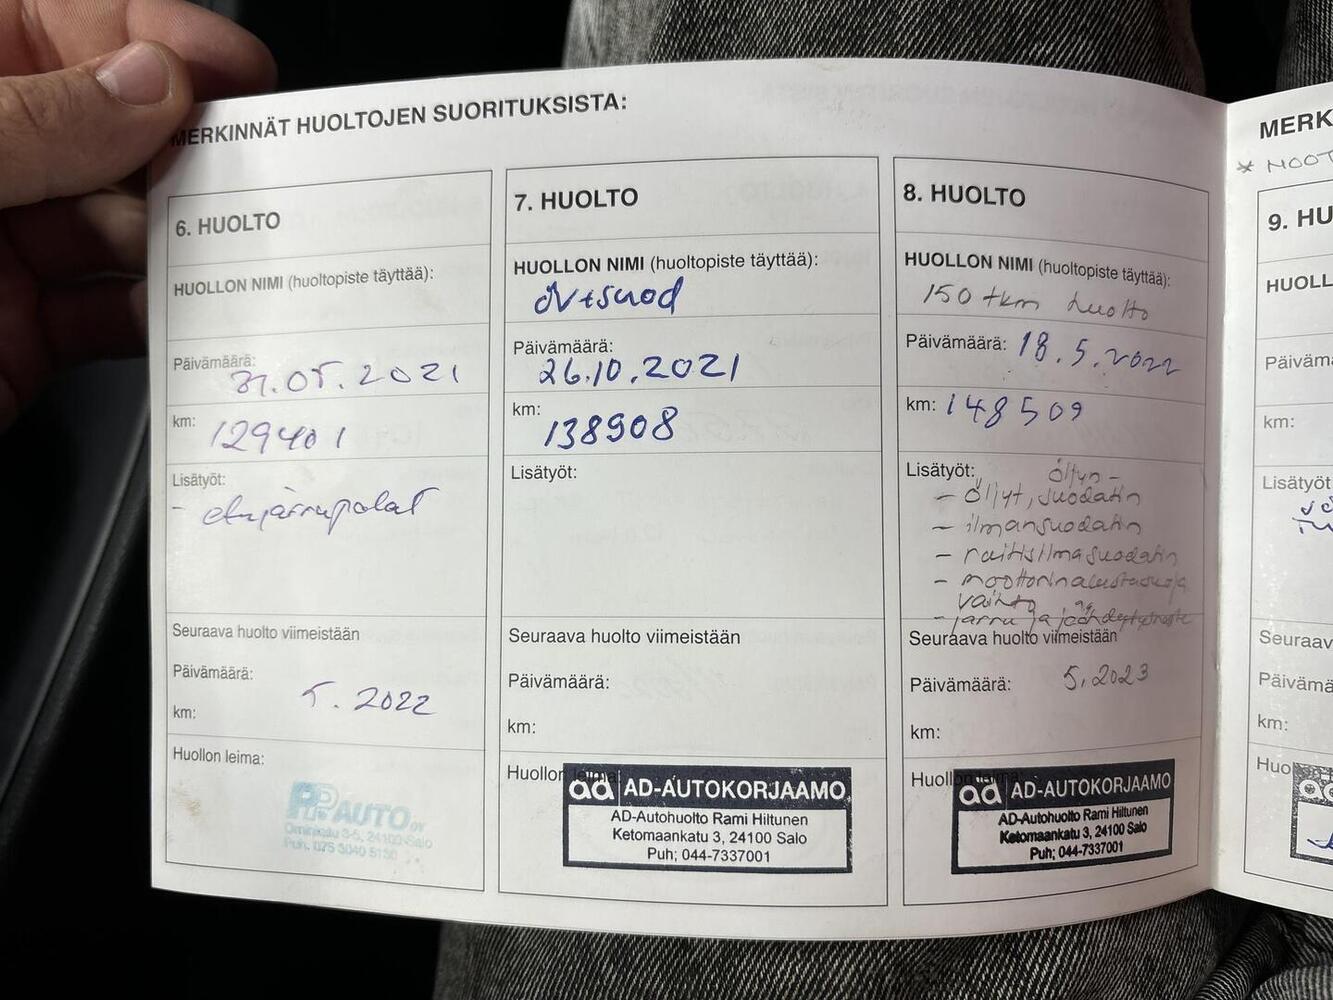 MERKINNÄT HUOLTOJEN SUORITUKSISTA:
6. HUOLTO
HUOLLON NIMI (huoltopiste täyttää):
Päivämäärä:
31.05.2021
km:
129401
Lisätyöt:
- etujarrupalat
Seuraava huolto viimeistään
Päivämäärä:
5.2022
km:
Huollon leima:
PP AUTO OY
24100 Salo
7. HUOLTO
HUOLLON NIMI (huoltopiste täyttää):
öV+suod
Päivämäärä:
26.10.2021
km:
138908
Lisätyöt:
Seuraava huolto viimeistään
Päivämäärä:
km:
Huollon leima:
ad AD-AUTOKORJAAMO
AD-Autohuolto Rami Hiltunen
Ketomaankatu 3, 24100 Salo
Puh; 044-7337001
8. HUOLTO
HUOLLON NIMI (huoltopiste täyttää):
150 tkm huolto
Päivämäärä: 18.5.2022
km: 148509
Lisätyöt: öljyn-
- öljyt, suodatin
- ilmansuodatin
- raitisilmasuodatin
- moottorinalustasuoja
vaihto
- jarru ja jäähdytysneste
Seuraava huolto viimeistään
Päivämäärä: 5.2023
km:
Huollon leima:
ad AD-AUTOKORJAAMO
AD-Autohuolto Rami Hiltunen
Ketomaankatu 3, 24100 Salo
Puh; 044-7337001
MERK
* MOOT
9. HU
HUOLL
Päiväm
km:
Lisätyöt
Seuraav
Päivämä
km:
Huo